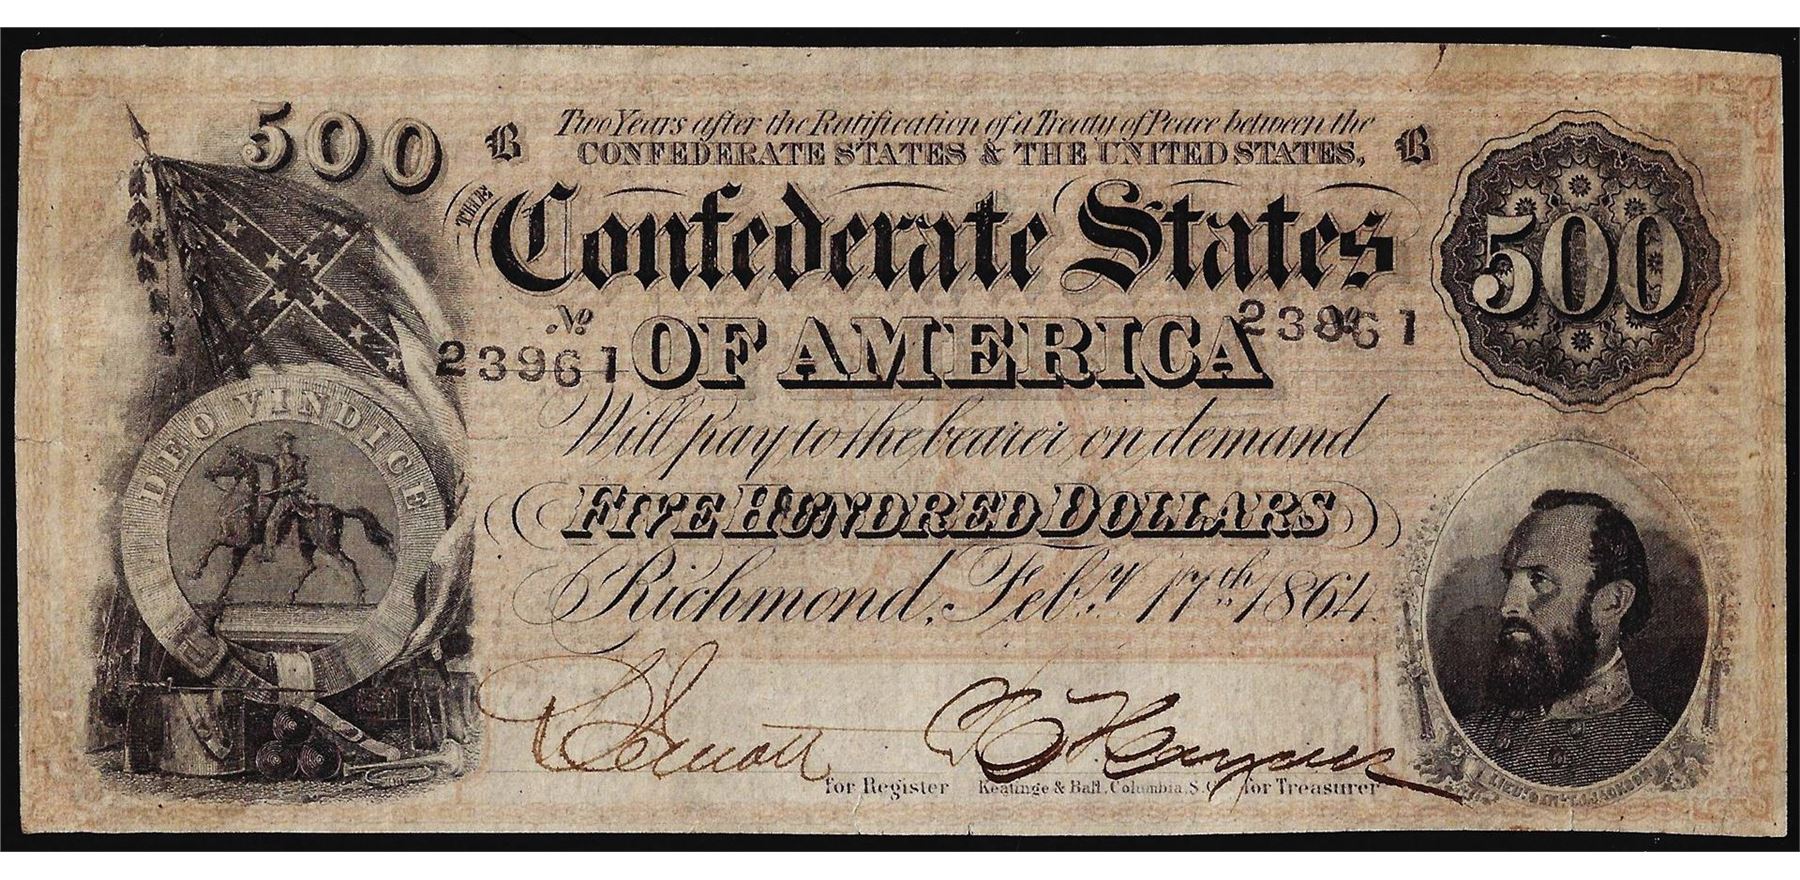 500
B Two Years after the Ratification of a Treaty of Peace between the B
CONFEDERATE STATES & THE UNITED STATES,
THE Confederate States
500
No 23961
OF AMERICA
23961
Will pay to the bearer on demand
DEO VINDICE
FIVE HUNDRED DOLLARS
Richmond, Feby. 17th 1864.
for Register
Keatinge & Ball, Columbia, S.C.
for Treasurer
LIEUT. GENL. T.J. JACKSON